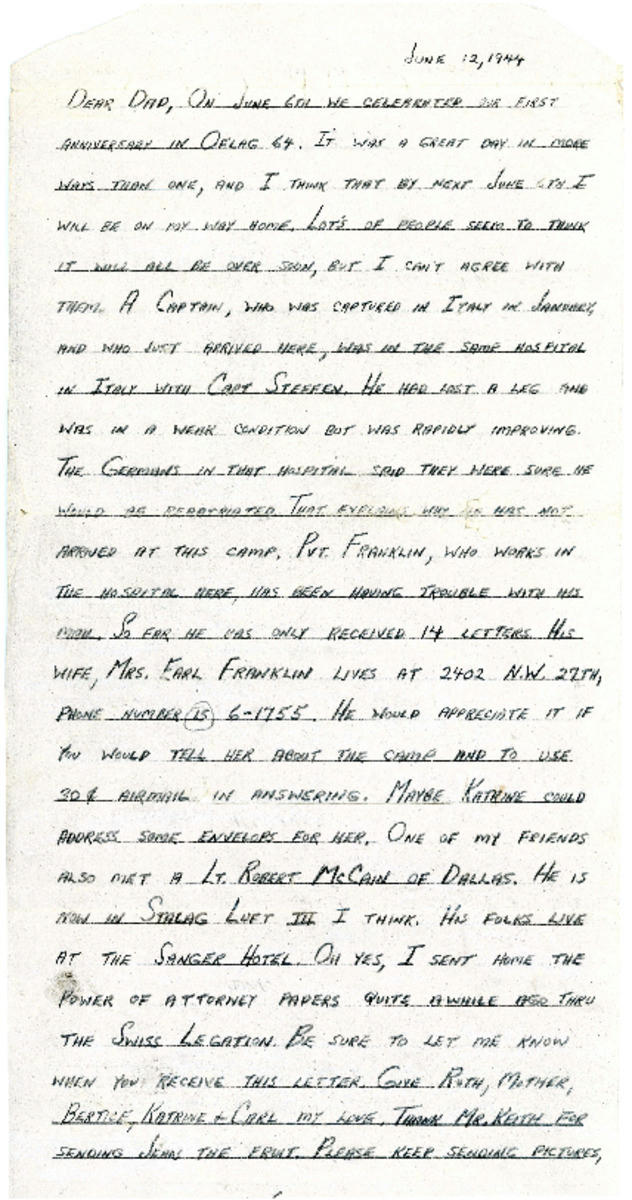 JUNE 12, 1944
DEAR DAD, ON JUNE 6TH WE CELEBRATED OUR FIRST
ANNIVERSARY IN OFLAG 64. IT WAS A GREAT DAY IN MORE
WAYS THAN ONE, AND I THINK THAT BY NEXT JUNE 6TH I
WILL BE ON MY WAY HOME. LOT'S OF PEOPLE SEEM TO THINK
IT WILL ALL BE OVER SOON, BUT I CAN'T AGREE WITH
THEM. A CAPTAIN, WHO WAS CAPTURED IN ITALY IN JANUARY,
AND WHO JUST ARRIVED HERE, WAS IN THE SAME HOSPITAL
IN ITALY WITH CAPT STEFFEN. HE HAD LOST A LEG AND
WAS IN A WEAK CONDITION BUT WAS RAPIDLY IMPROVING.
THE GERMANS IN THAT HOSPITAL SAID THEY WERE SURE HE
WOULD BE REPATRIATED THAT EXPLAINS WHY HE HAS NOT
ARRIVED AT THIS CAMP. PVT. FRANKLIN, WHO WORKS IN
THE HOSPITAL HERE, HAS BEEN HAVING TROUBLE WITH HIS
MAIL. SO FAR HE HAS ONLY RECEIVED 14 LETTERS. HIS
WIFE, MRS. EARL FRANKLIN LIVES AT 2402 N.W. 27TH,
PHONE NUMBER IS 6-1755. HE WOULD APPRECIATE IT IF
YOU WOULD TELL HER ABOUT THE CAMP AND TO USE
30¢ AIRMAIL IN ANSWERING. MAYBE KATRINE COULD
ADDRESS SOME ENVELOPS FOR HER. ONE OF MY FRIENDS
ALSO MET A LT. ROBERT MCCAIN OF DALLAS. HE IS
NOW IN STALAG LUFT III I THINK. HIS FOLKS LIVE
AT THE SANGER HOTEL. OH YES, I SENT HOME THE
POWER OF ATTORNEY PAPERS QUITE AWHILE AGO THRU
THE SWISS LEGATION. BE SURE TO LET ME KNOW
WHEN YOU RECEIVE THIS LETTER. GIVE RUTH, MOTHER,
BERTICE, KATRINE + CARL MY LOVE. THANK MR. KEITH FOR
SENDING JEAN THE FRUIT. PLEASE KEEP SENDING PICTURES,